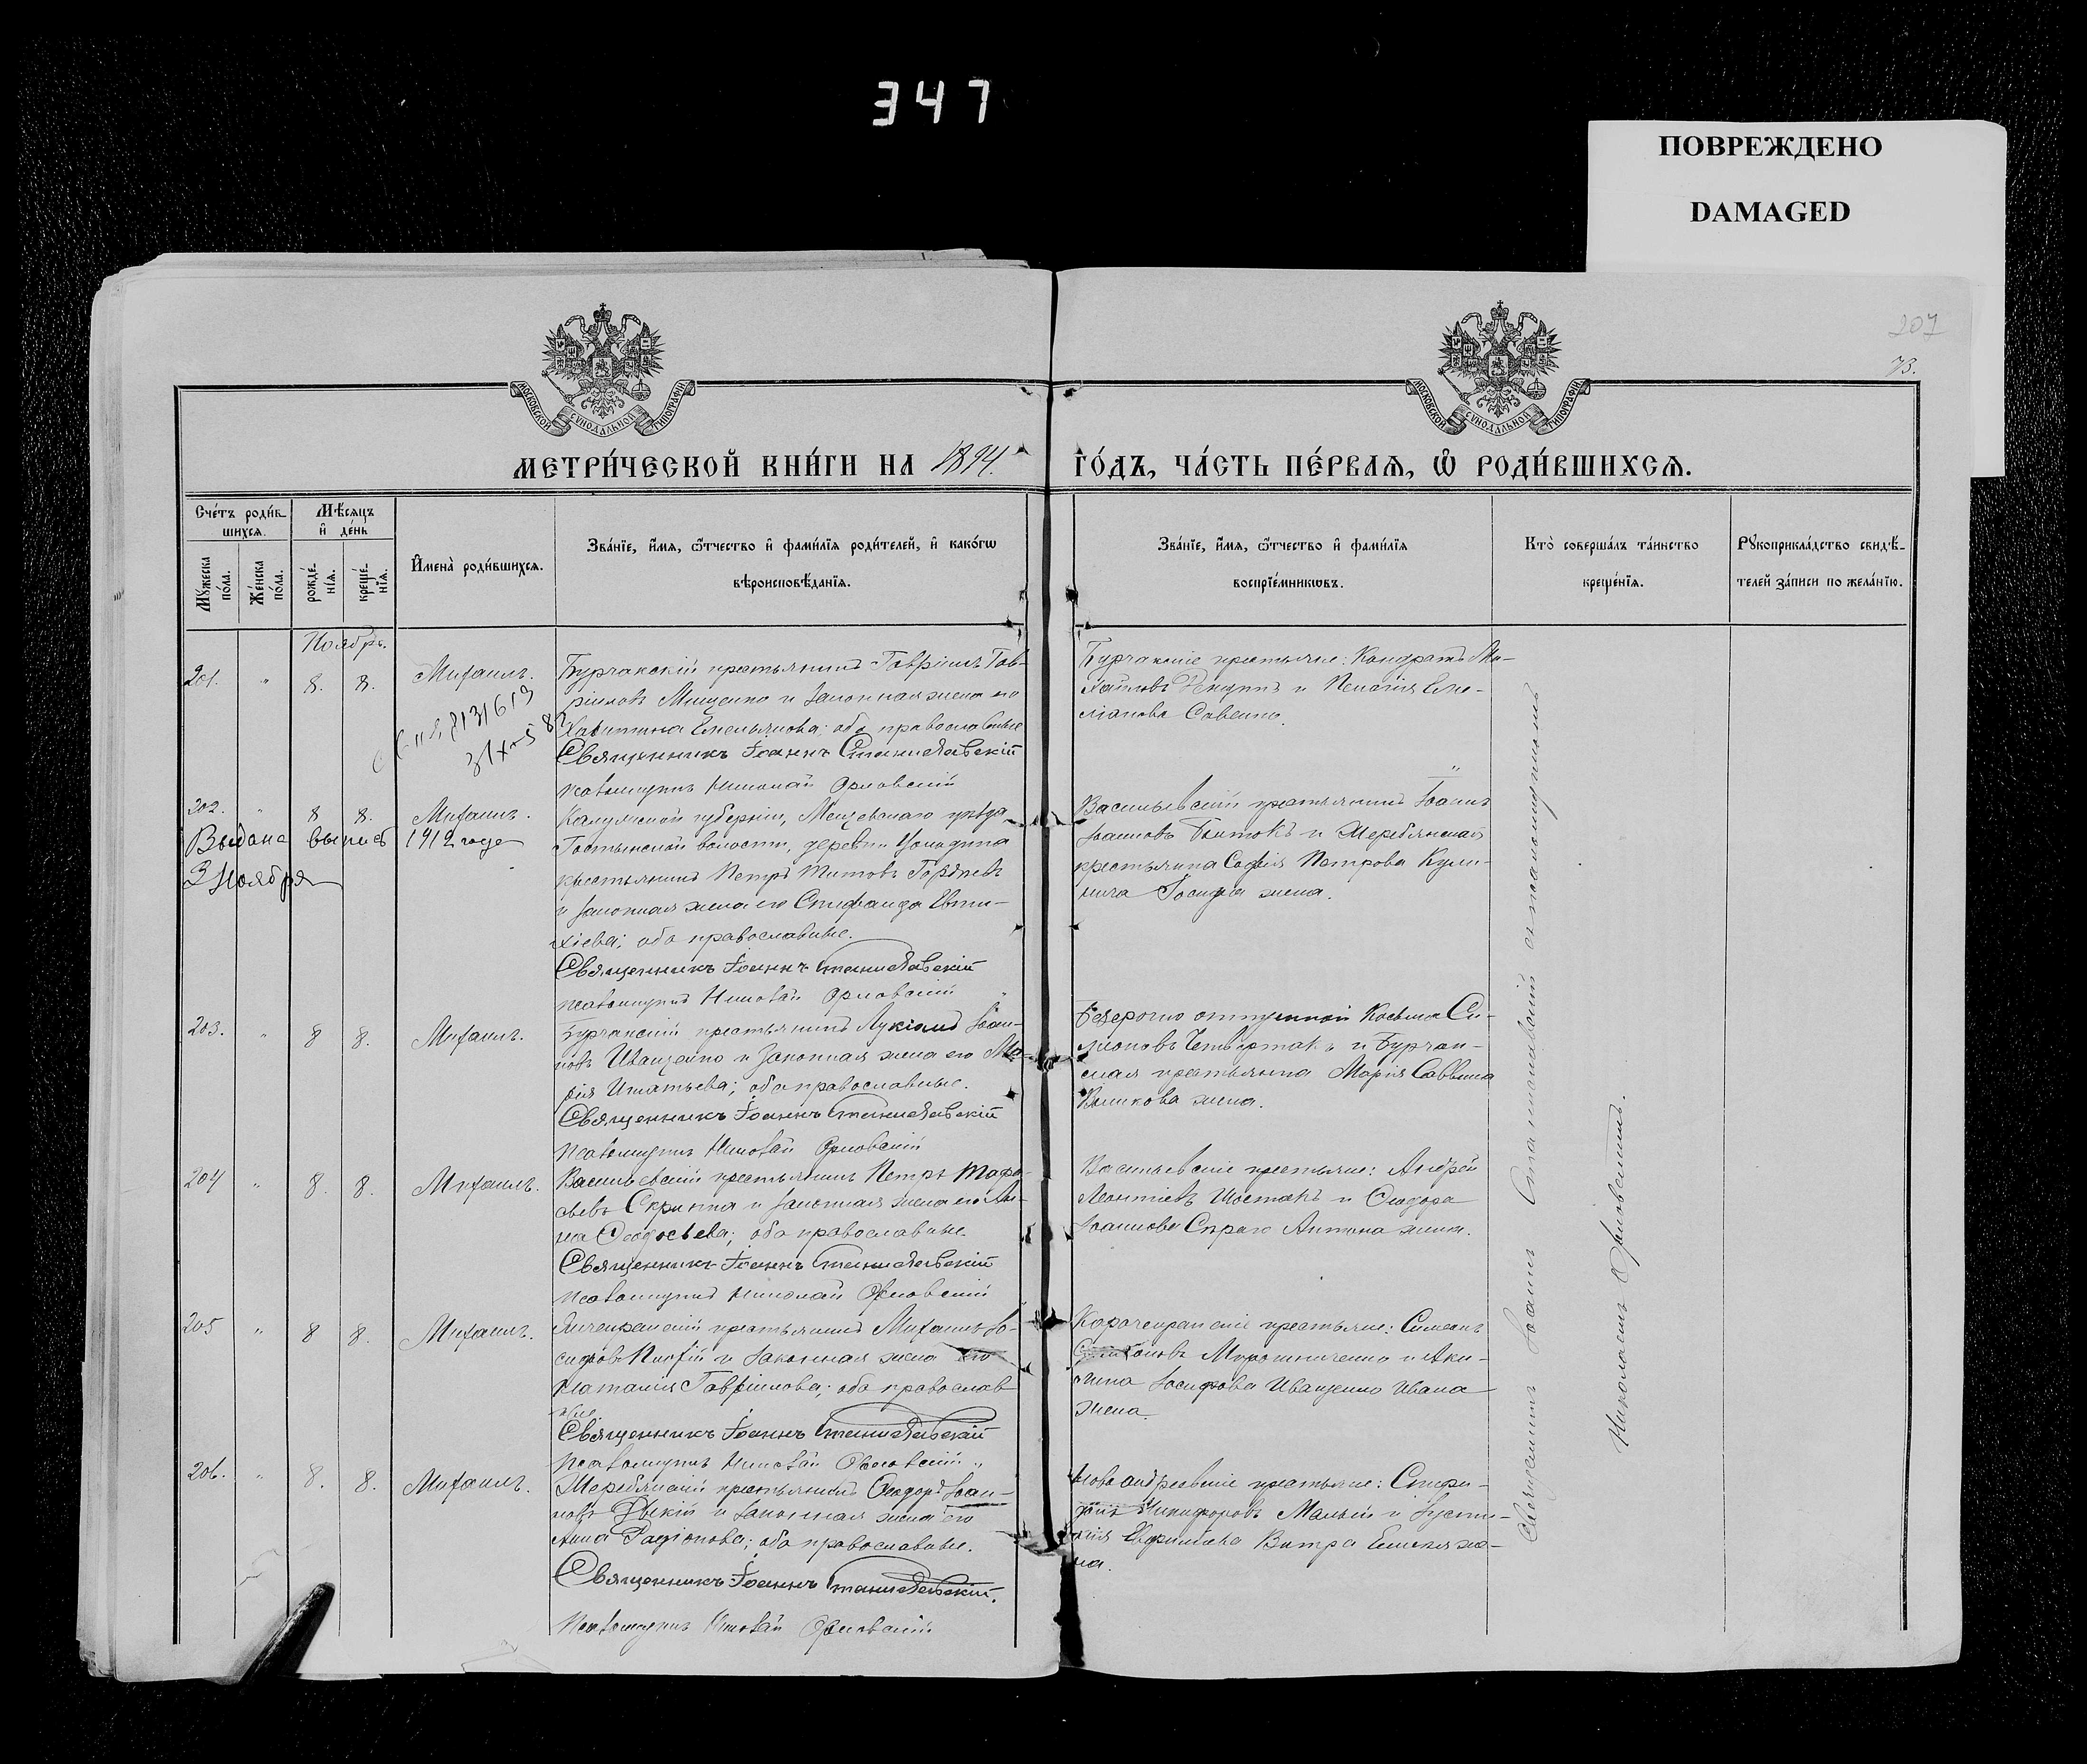 347
ПОВРЕЖДЕНО
DAMAGED
207
73.
МОСКОВСКОЙ СУНОДАЛЬНОЙ ТИПОГРАФІИ
МОСКОВСКОЙ СУНОДАЛЬНОЙ ТИПОГРАФІИ
МЕТРИ́ЧЕСКОЙ КНИ́ГИ НА 1894.
ГО́ДЪ, ЧА́СТЬ ПЕ́РВАѦ, Ѽ РОДИ́ВШИХСѦ.
Сче́тъ роди́в-
шихсѧ.
Мѣ́сѧцъ
и҆ де́нь
Мꙋ́жеска
по́ла.
Же́нска
по́ла.
рожде́-
нїѧ.
креще́-
нїѧ.
И҆мена̀ роди́вшихсѧ.
Зва́нїе, и҆́мѧ, ѻ҆́тчество и҆ фами́лїѧ роди́телей, и҆ како́гѡ
вѣроисповѣ́данїѧ.
Зва́нїе, и҆́мѧ, ѻ҆́тчество и҆ фами́лїѧ
воспрїе́мникѡвъ.
Кто̀ соверша́лъ та́инство
креще́нїѧ.
Рꙋкоприкла́дство свидѣ́-
телей за́писи по жела́нїю.
Ноябрь.
201. " 8. 8. Михаилъ.
Бурчакскій крестьянинъ Гавріилъ Гав-
ріиловъ Мищенко и законная жена его
Харитина Емельянова; оба православные
Священникъ Іоаннъ Станиславскій
псаломщикъ Николай Орловскій
Бурчакскіе крестьяне: Кондратъ Ми-
хайловъ и Пелагія Еме-
ліанова Савенко.
202. " 8 8. Михаилъ.
Выдана выпись 1912 года
3 Ноября
Калужской губерніи, Мещевскаго уѣзда,
волости, деревни
крестьянинъ Петръ Титовъ Гордѣевъ
и законная жена его Стефанида Евти-
хіева; оба православные.
Священникъ Іоаннъ Станиславскій
псаломщикъ Николай Орловскій
Васильевскій крестьянинъ Іоаннъ
Іоанновъ Бытокъ и Жеребянская
крестьянка Софія Петрова Кули-
нича Іосифа жена.
203. " 8 8. Михаилъ.
Бурчакскій крестьянинъ Лукіанъ Іоан-
новъ Иващенко и законная жена его Ма-
рія Игнатьева; оба православные.
Священникъ Іоаннъ Станиславскій
псаломщикъ Николай Орловскій
Безсрочно отпускной Косьма Си-
меоновъ Четвертакъ и Бурчак-
ская крестьянка Марія Саввина
жена.
204 " 8. 8. Михаилъ.
Васильевскій крестьянинъ Петръ Тара-
сьевъ Скрипка и законная жена его Ан-
на Ѳеодосьева; оба православные.
Священникъ Іоаннъ Станиславскій
псаломщикъ Николай Орловскій
Васильевскіе крестьяне: Андрей
Леонтіевъ Шостакъ и Ѳеодора
Іоаннова Антона жена.
205 " 8 8. Михаилъ.
Янчекракскій крестьянинъ Михаилъ Іо-
сифовъ и законная жена его
Наталія Гавріилова; оба православ-
ные
Священникъ Іоаннъ Станиславскій
псаломщикъ Николай Орловскій
Карачекракскіе крестьяне: Симеонъ
Мирошниченко и Аки-
лина Іосифова Иващенко Ивана
жена.
206. " 8. 8. Михаилъ.
Жеребянскій крестьянинъ Ѳеодоръ Іоан-
новъ и законная жена его
Анна Родіонова; оба православные.
Священникъ Іоаннъ Станиславскій.
Псаломщикъ Николай Орловскій
Новоандреевскіе крестьяне: Стефа-
Никифоровъ Малый и Іусти-
нія Витра же-
на.
Священникъ Іоаннъ Станиславскій съ псаломщикомъ
Николаемъ Орловскимъ.